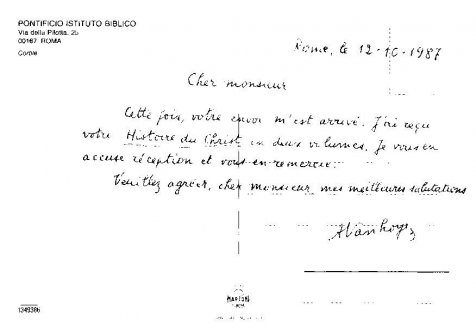 PONTIFICIO ISTITUTO BIBLICO
Via della Pilotta, 25
00187 ROMA
Rome, le 12-10-1987
Cher monsieur
Cette fois, votre envoi m'est arrivé. J'ai reçu
votre Histoire du Christ en deux volumes. Je vous en
accuse réception et vous en remercie.
Veuillez agréer, cher monsieur, mes meilleures salutations
AVanhoye
1349386